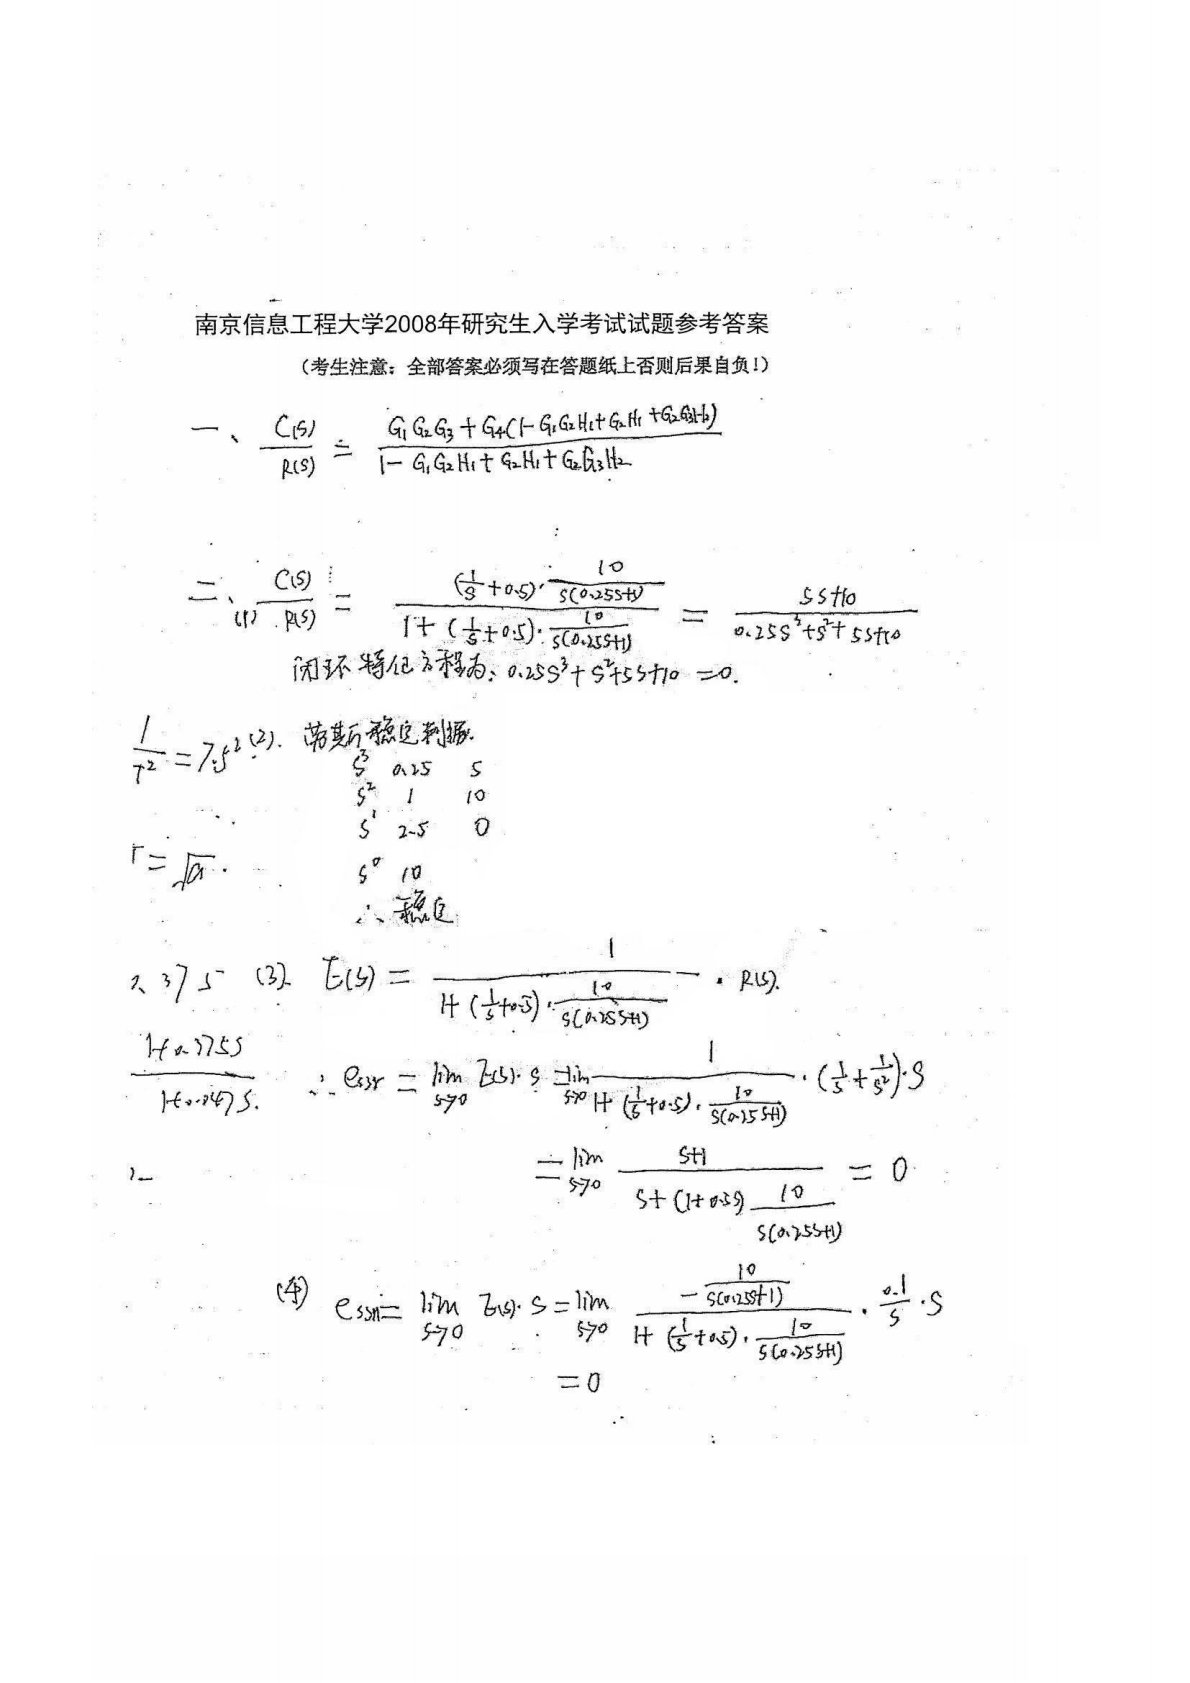 南京信息工程大学2008年研究生入学考试试题参考答案
（考生注意：全部答案必须写在答题纸上否则后果自负！）
一、 C(S)/R(S) = (G₁G₂G₃ + G₄(1 - G₁G₂H₁ + G₂H₁ + G₂G₃H₂)) / (1 - G₁G₂H₁ + G₂H₁ + G₂G₃H₂)
二、(1) C(S)/R(S) = ((1/S + 0.5)·10/(S(0.25S+1))) / (1 + (1/S + 0.5)·10/(S(0.25S+1))) = (5S+10) / (0.25S³+S²+5S+10)
闭环特征方程为：0.25S³+S²+5S+10 =0.
1/T² = 7.5²
(2). 劳斯稳定判据.
S³ 0.25 5
S² 1 10
S¹ 2.5 0
S⁰ 10
∴ 稳定
(3). E(S) = 1 / (1+(1/S+0.5)·10/(S(0.25S+1))) · R(S).
∴ essr = lim S→0 E(S)·S = lim S→0 1 / (1+(1/S+0.5)·10/(S(0.25S+1))) · (1/S + 1/S²)·S
= lim S→0 (S+1) / (S+(1+0.5S) 10/(S(0.25S+1))) = 0
(4) essn = lim S→0 E(S)·S = lim S→0 (-10/(S(0.25S+1))) / (1+(1/S+0.5)·10/(S(0.25S+1))) · 0.1/S ·S
=0